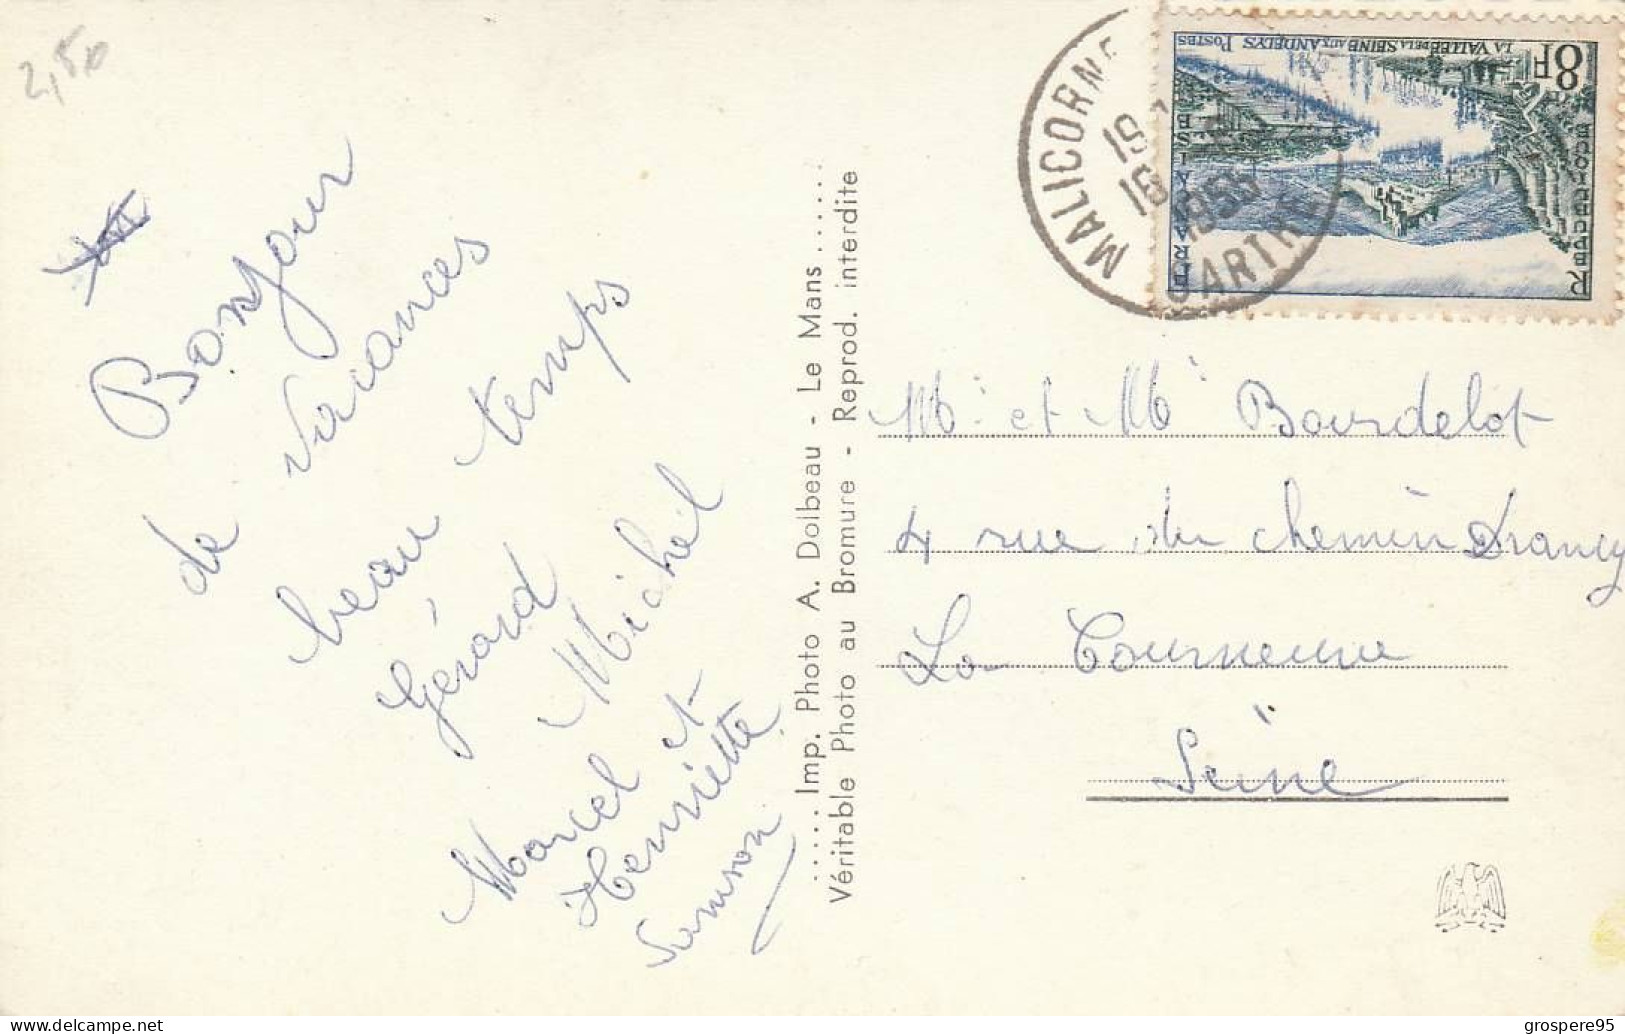 2,50
Bonjour
de vacances
beau temps
Gérard
Michel
Marcel et
Henriette
Samson
Imp. Photo A. Dolbeau - Le Mans
Véritable Photo au Bromure - Reprod. interdite
MALICORNE
SARTHE
19
16
1955
8F
LA VALLÉE DE LA SEINE AUX ANDELYS POSTES
REPUBLIQUE FRANÇAISE
Mr et Mme Bourdelot
4 rue du chemin Drancy
La Courneuve
Seine
grospere95
www.delcampe.net